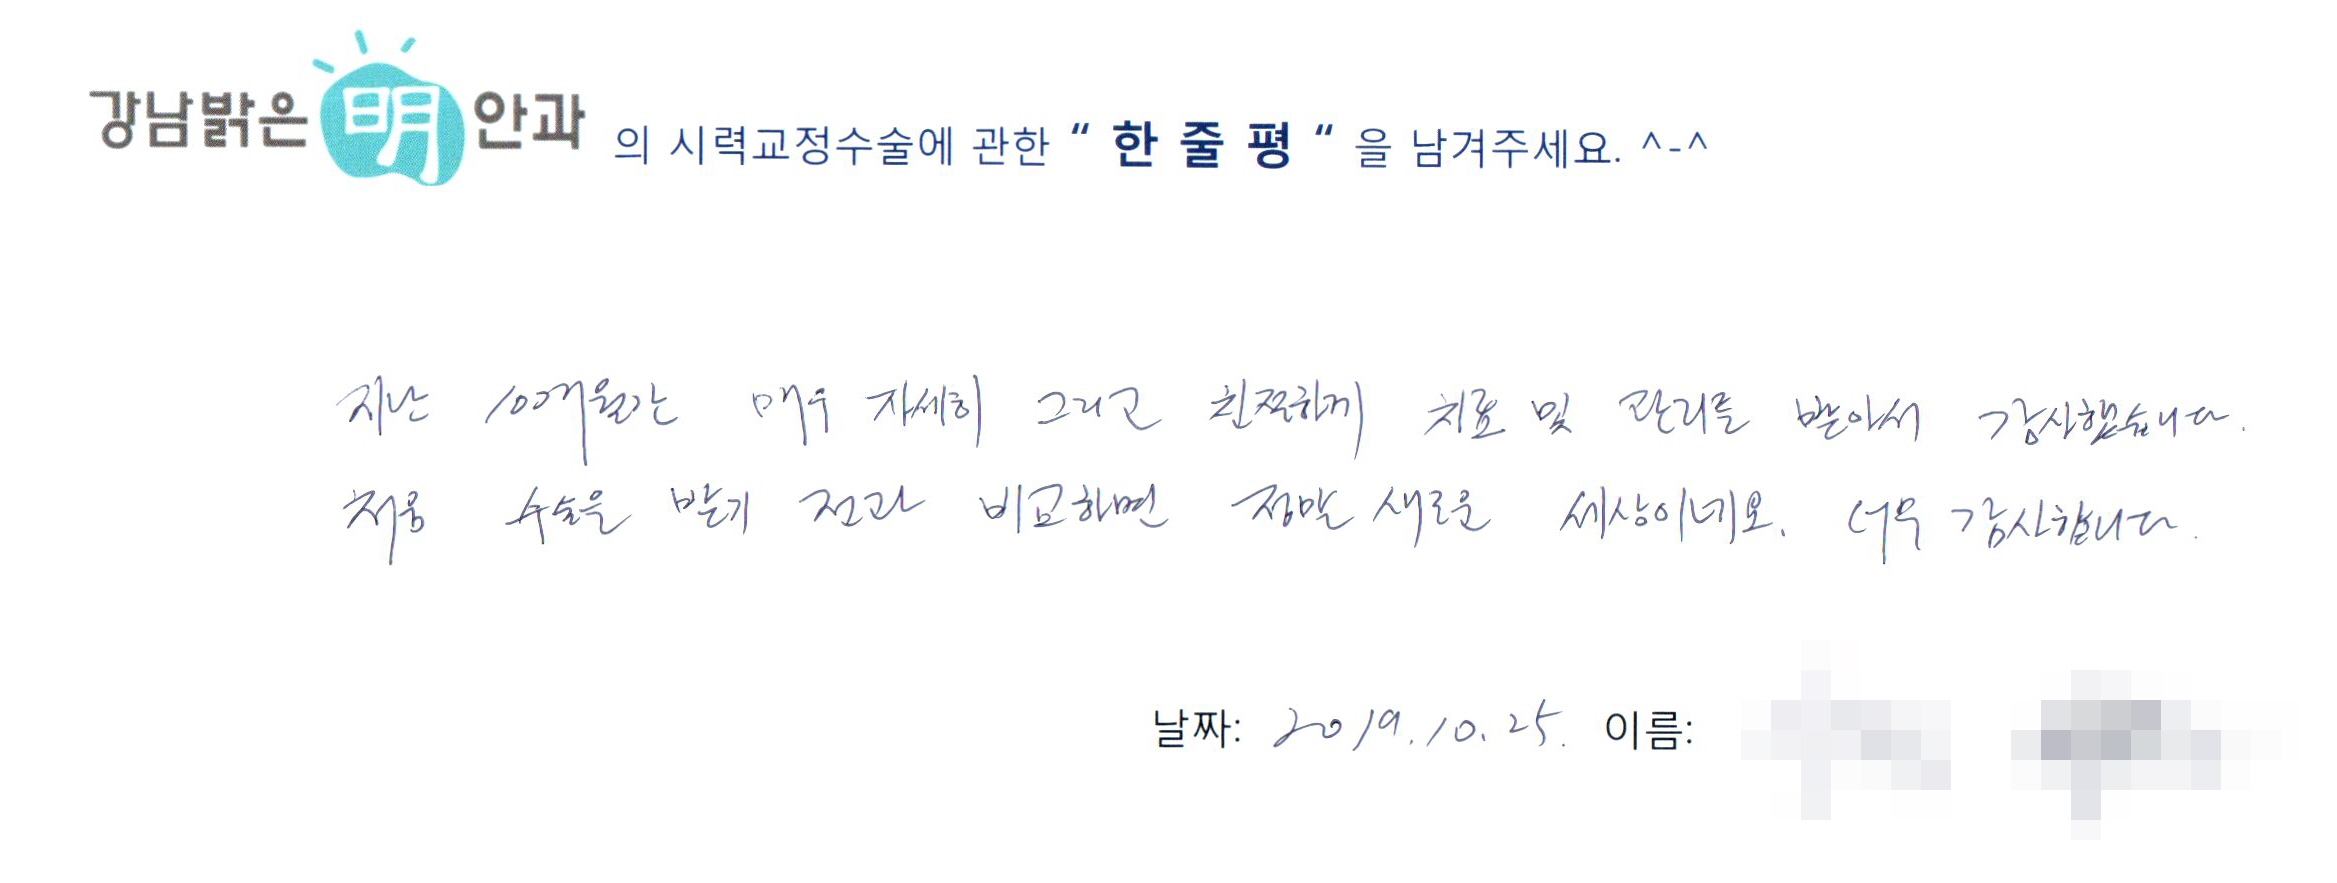 강남밝은 明 안과 의 시력교정수술에 관한 “ 한 줄 평 “ 을 남겨주세요. ^-^
지난 10개월간 매우 자세히 그리고 친절하게 치료 및 관리를 받아서 감사했습니다.
처음 수술을 받기 전과 비교하면 정말 새로운 세상이네요. 너무 감사합니다.
날짜: 2019.10.25. 이름: